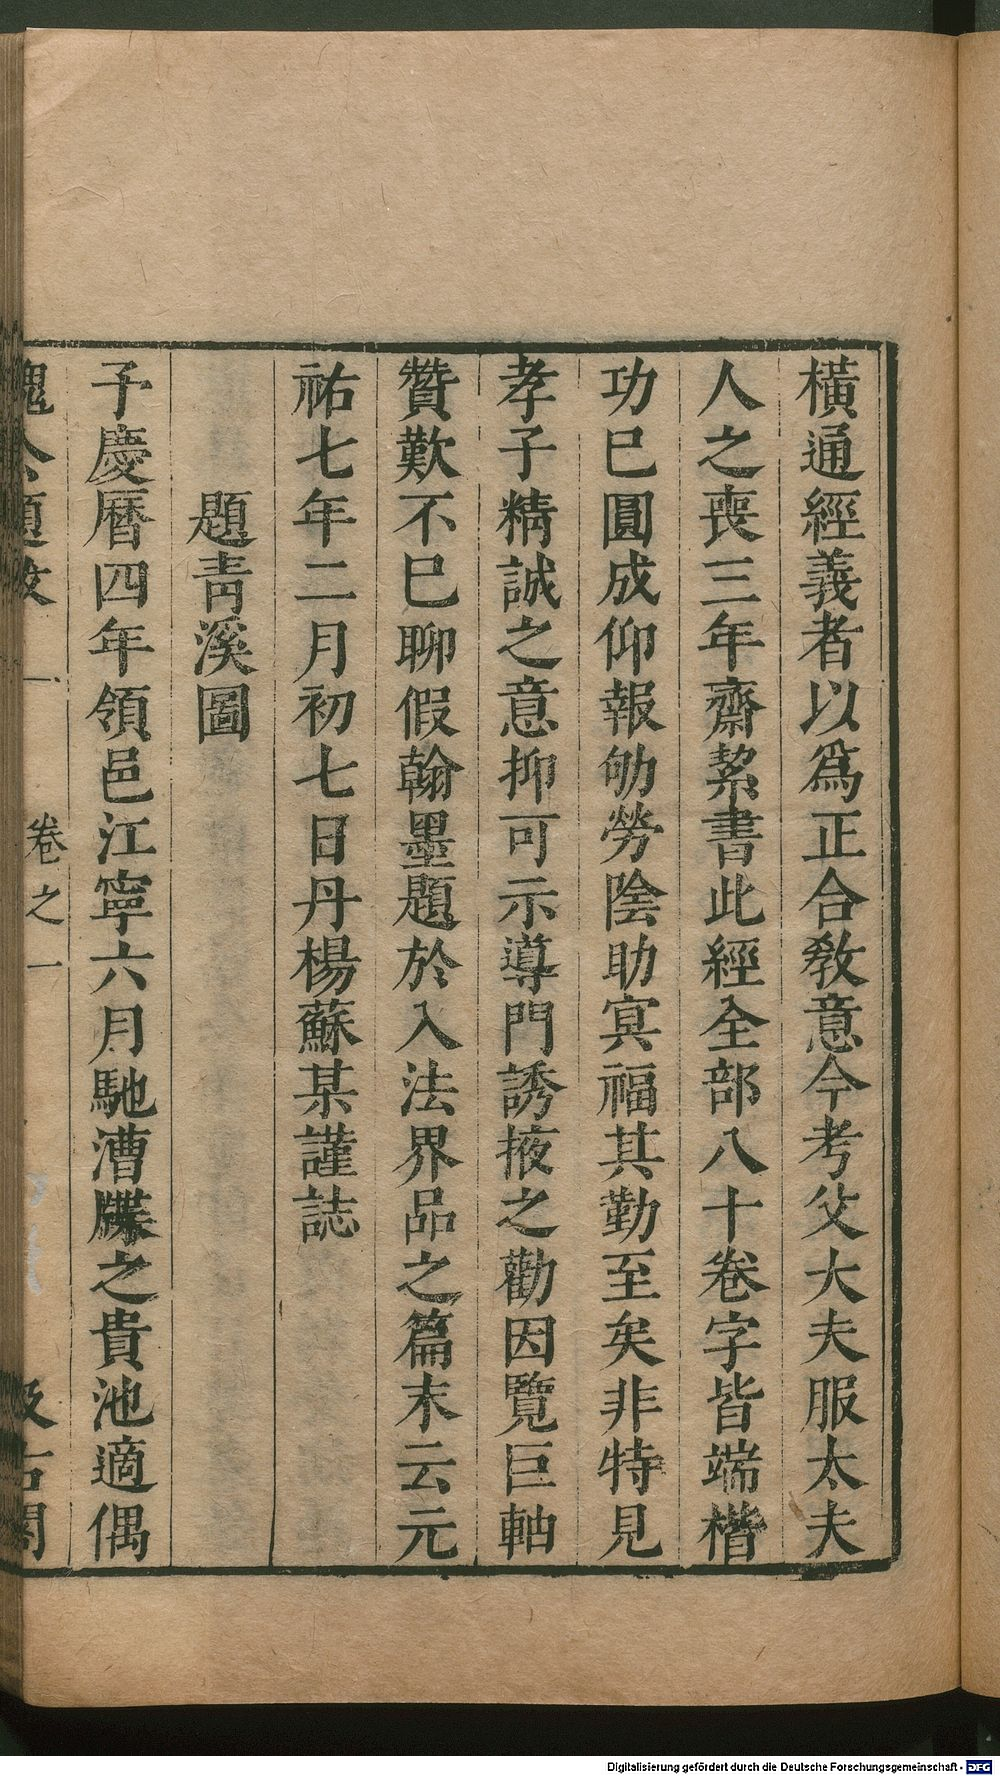 橫通經義者以爲正合敎意今考父大夫服太夫
人之喪三年齋絜書此經全部八十卷字皆端楷
功已圓成仰報劬勞陰助冥福其勤至矣非特見
孝子精誠之意抑可示導門誘掖之勸因覽巨軸
贊歎不已聊假翰墨題於入法界品之篇末云元
祐七年二月初七日丹楊蘇某謹誌
題靑溪圖
予慶曆四年領邑江寧六月馳漕牒之貴池適偶
魏公題跋 卷之一 汲古閣
Digitalisierung gefördert durch die Deutsche Forschungsgemeinschaft - DFG